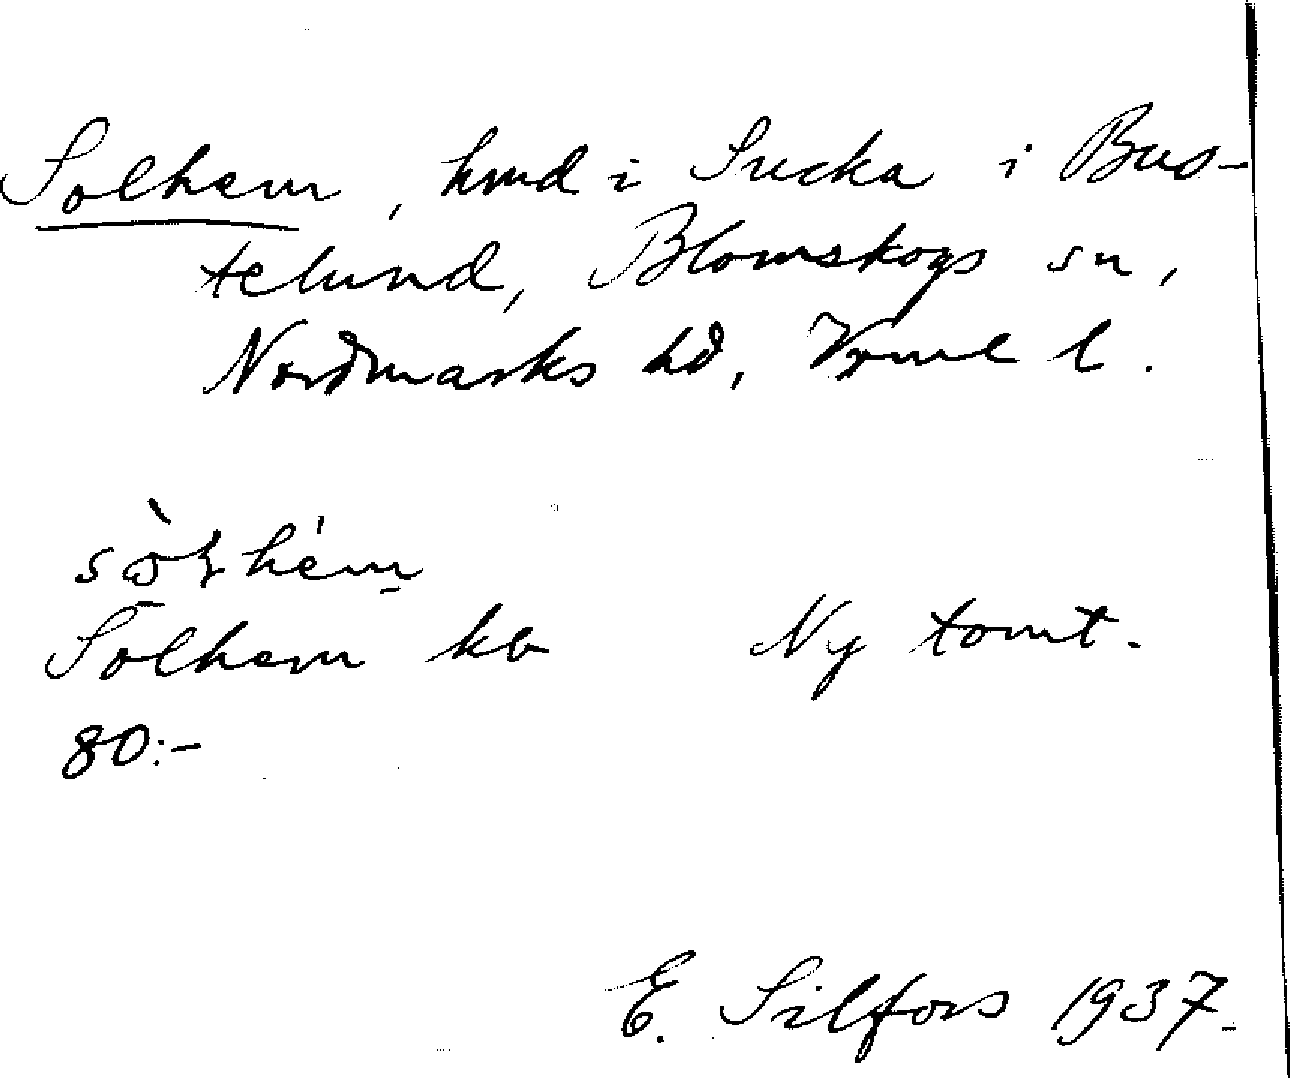 Solhem, hmd i Sucka i Bus-
telund, Blomskogs sn,
Nordmarks hd, Vrml l.
Solhem kb Ny tomt.
80:-
E. Silfors 1937.